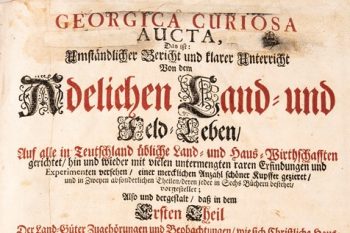 GEORGICA CURIOSA
AUCTA,
Das ist:
Umständlicher Bericht und klarer Unterricht
Von dem
Adelichen Land- und
Feld-Leben/
Auf alle in Teutschland übliche Land- und Haus-Wirthschafften
gerichtet/ hin und wieder mit vielen untermengten raren Erfindungen und
Experimenten versehen/ einer mercklichen Anzahl schöner Kupffer gezieret/
und in Zweyen absonderlichen Theilen/ deren jeder in Sechs Büchern bestehet/
vorgestellet:
Also und dergestalt/ daß in dem
Ersten Theil
Der Land-Güter Zugehörungen und Beobachtungen/ wie sich Christliche Haus-